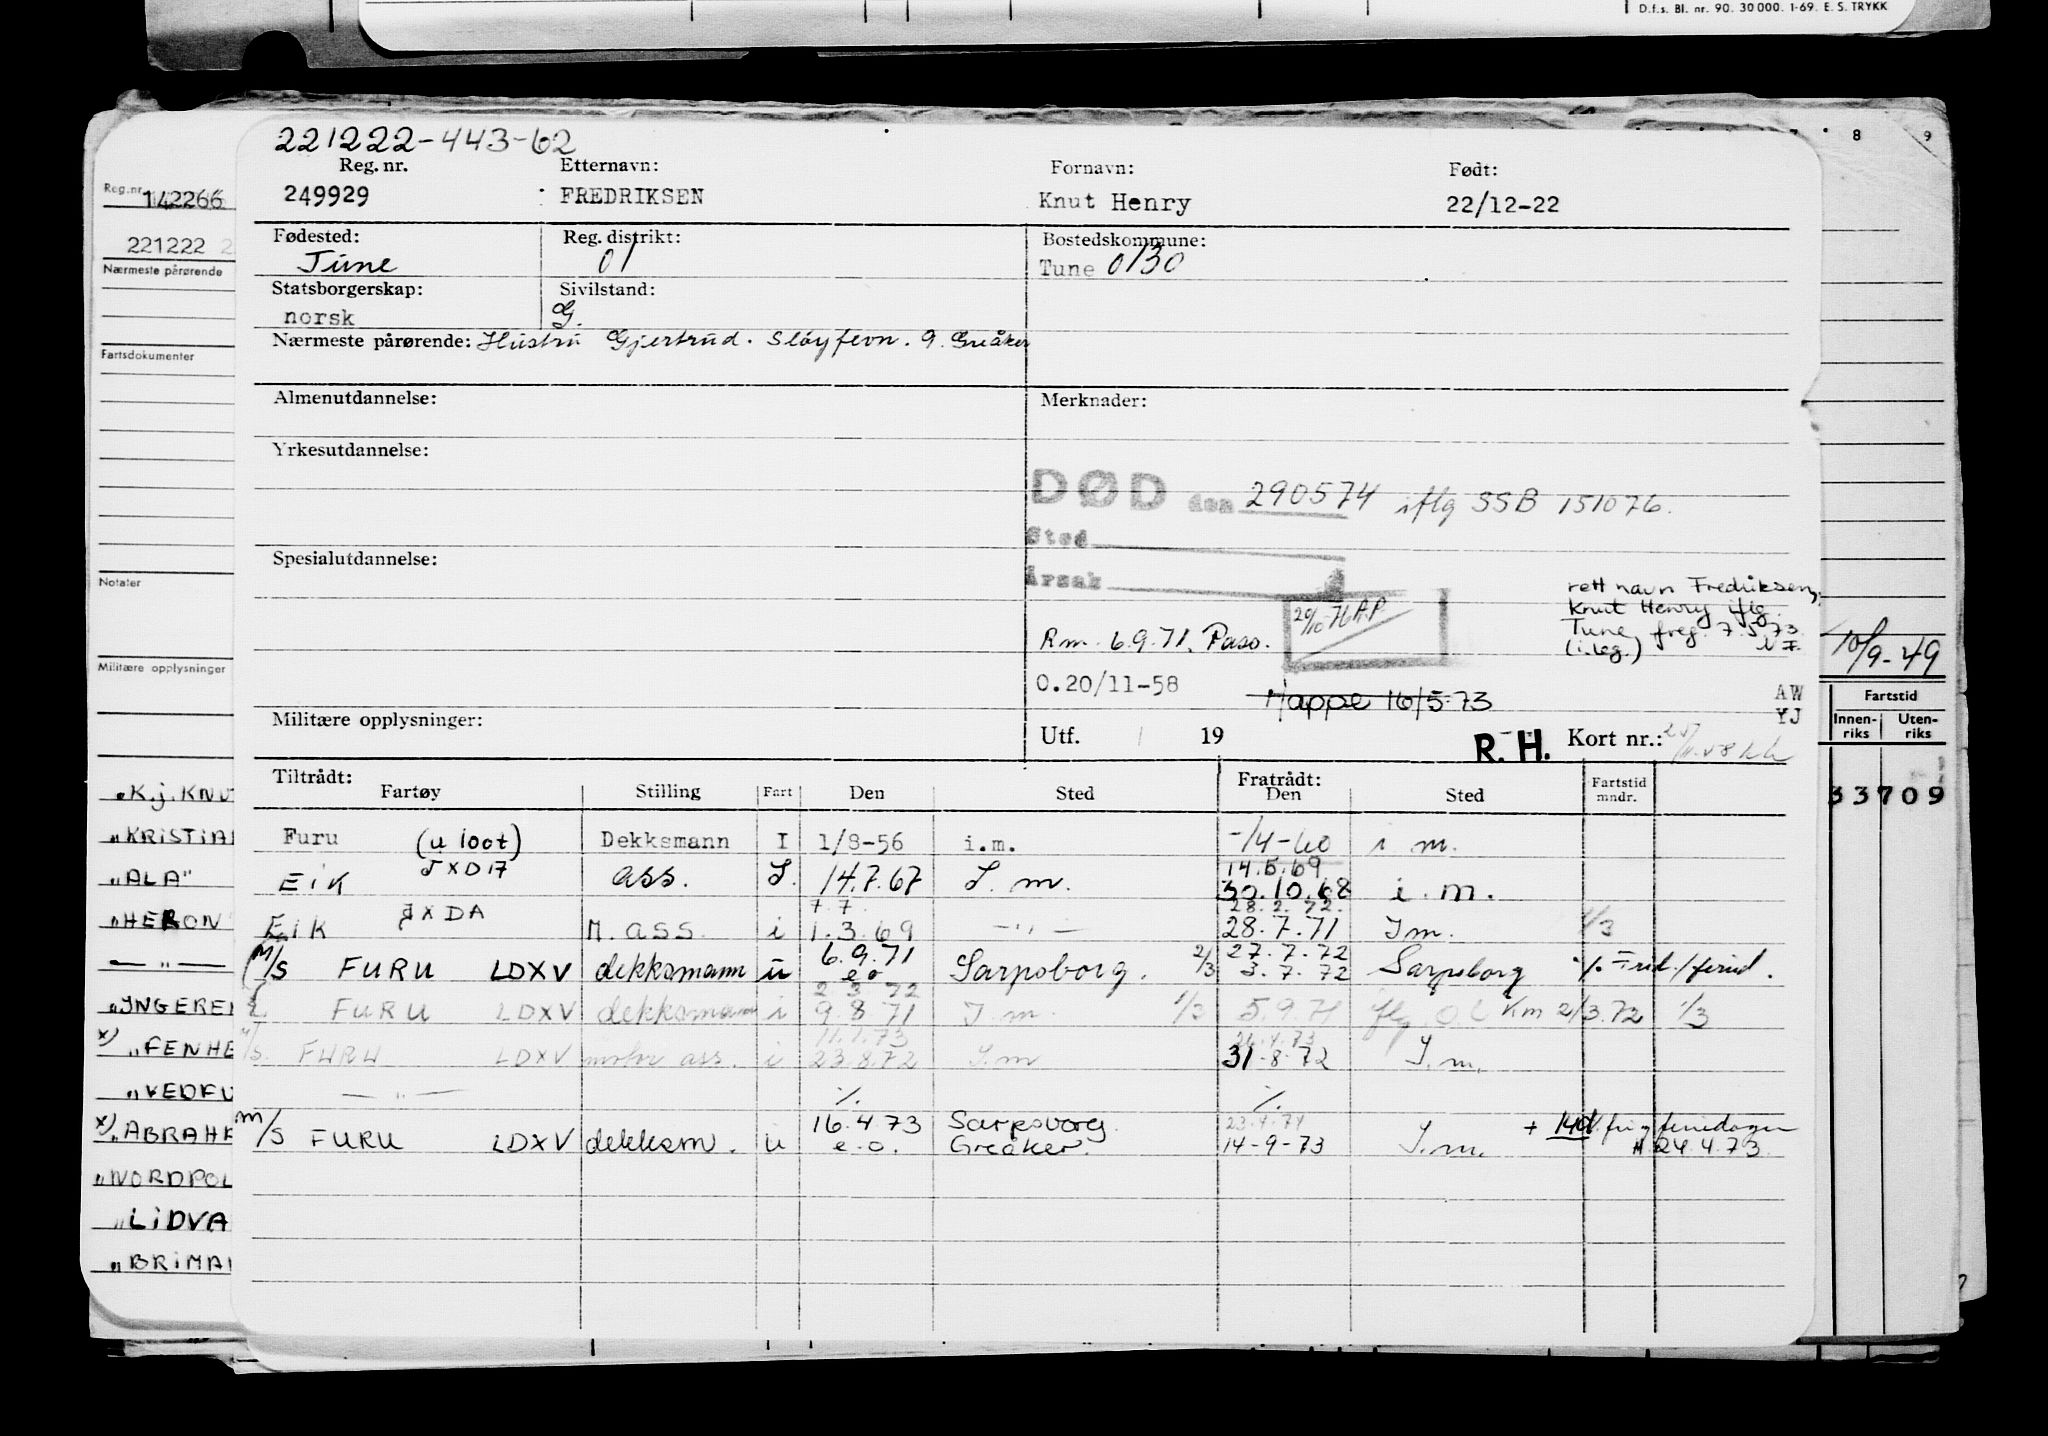 D.f.s. Bl. nr. 90. 30 000. 1-69. E. S. TRYKK
8 9
221222-443-62
Reg. nr. Etternavn: Fornavn: Født:
249929 FREDRIKSEN Knut Henry 22/12-22
Fødested: Reg. distrikt: Bostedskommune:
Tune 01 Tune 0130
Statsborgerskap: Sivilstand:
norsk G.
Nærmeste pårørende: Hustru Gjertrud. Sløyfevn. 9. Greåker
Almenutdannelse: Merknader:
Yrkesutdannelse:
DØD den 290574 iflg SSB 151076.
Sted
Spesialutdannelse:
Årsak
rett navn Fredriksen,
20/10-76 AP Knut Henry iflg.
Rm. 6.9.71. Pass. Tune freg. 7.5.73.
(i.leg.)
O.20/11-58 Mappe 16/5-73 AW
YJ
Militære opplysninger: Utf. 19 R. H. Kort nr.:
Tiltrådt: Fratrådt:
Fartøy Stilling Fart Den Sted Den Sted Fartstid mndr.
Furu (u 100t) Dekksmann I 1/8-56 i.m. -/4-60 i m.
JXDI7 14.5.69
EIK ass. I. 14.7.67 I.m. 30.10.68 i.m.
JXDA 7.7. 28.2.72.
EIK M.ass. i 1.3.69 —"— 28.7.71 Im. 1/3
6.9.71 27.7.72
M/S FURU LDXV dekksmann u e o Sarpsborg. 2/3 3.7.72 Sarpsborg
2 3 72
FURU LDXV dekksmann i 9.8.71 I m. 1/3 5.9.71 Km 2/3.72 1/3
11.1.73 26.4.73
FURU LDXV motor ass. i 23.8.72 I.m 31-8-72 I.m.
—"— %. %.
16.4.73 Sarpsborg. 23.4.74 + 14d. fri g feriedager
m/S FURU LDXV dekksm. u e.o. Greåker. 14-9-73 I.m. 24.4.73.
Reg.nr. 142266
221222 2
Nærmeste pårørende
Fartsdokumenter
Notater
Militære opplysninger
"K.j. KNU
"KRISTIA
"ALA"
"HERON
— " —
"INGERE
x) "FENHE
"VEDFU
x) "ABRAHE
"NORDPOL
"LIDVA
"BRIMA
10/9-49
Fartstid
Innen-riks Uten-riks
33709